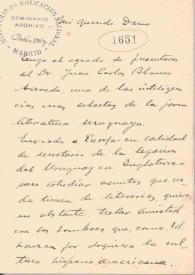 MINISTERIO DE EDUCACIÓN NACIONAL
SEMINARIO
ARCHIVO
Rubén Darío
MADRID
Mi querido Darío
1651
Tengo el agrado de presentarle
al Dr. Juan Carlos Blanco
Acevedo, una de las inteligen
cias más selectas de la joven
literatura uruguaya.
Enviado a Europa en calidad
de secretario de la legación
del Uruguay en Inglaterra
para estudiar asuntos que na
da tienen de literarios, quiere
no obstante, trabar amistad
con los hombres que, como Vd
honran por doquiera la cul
tura hispano americana.